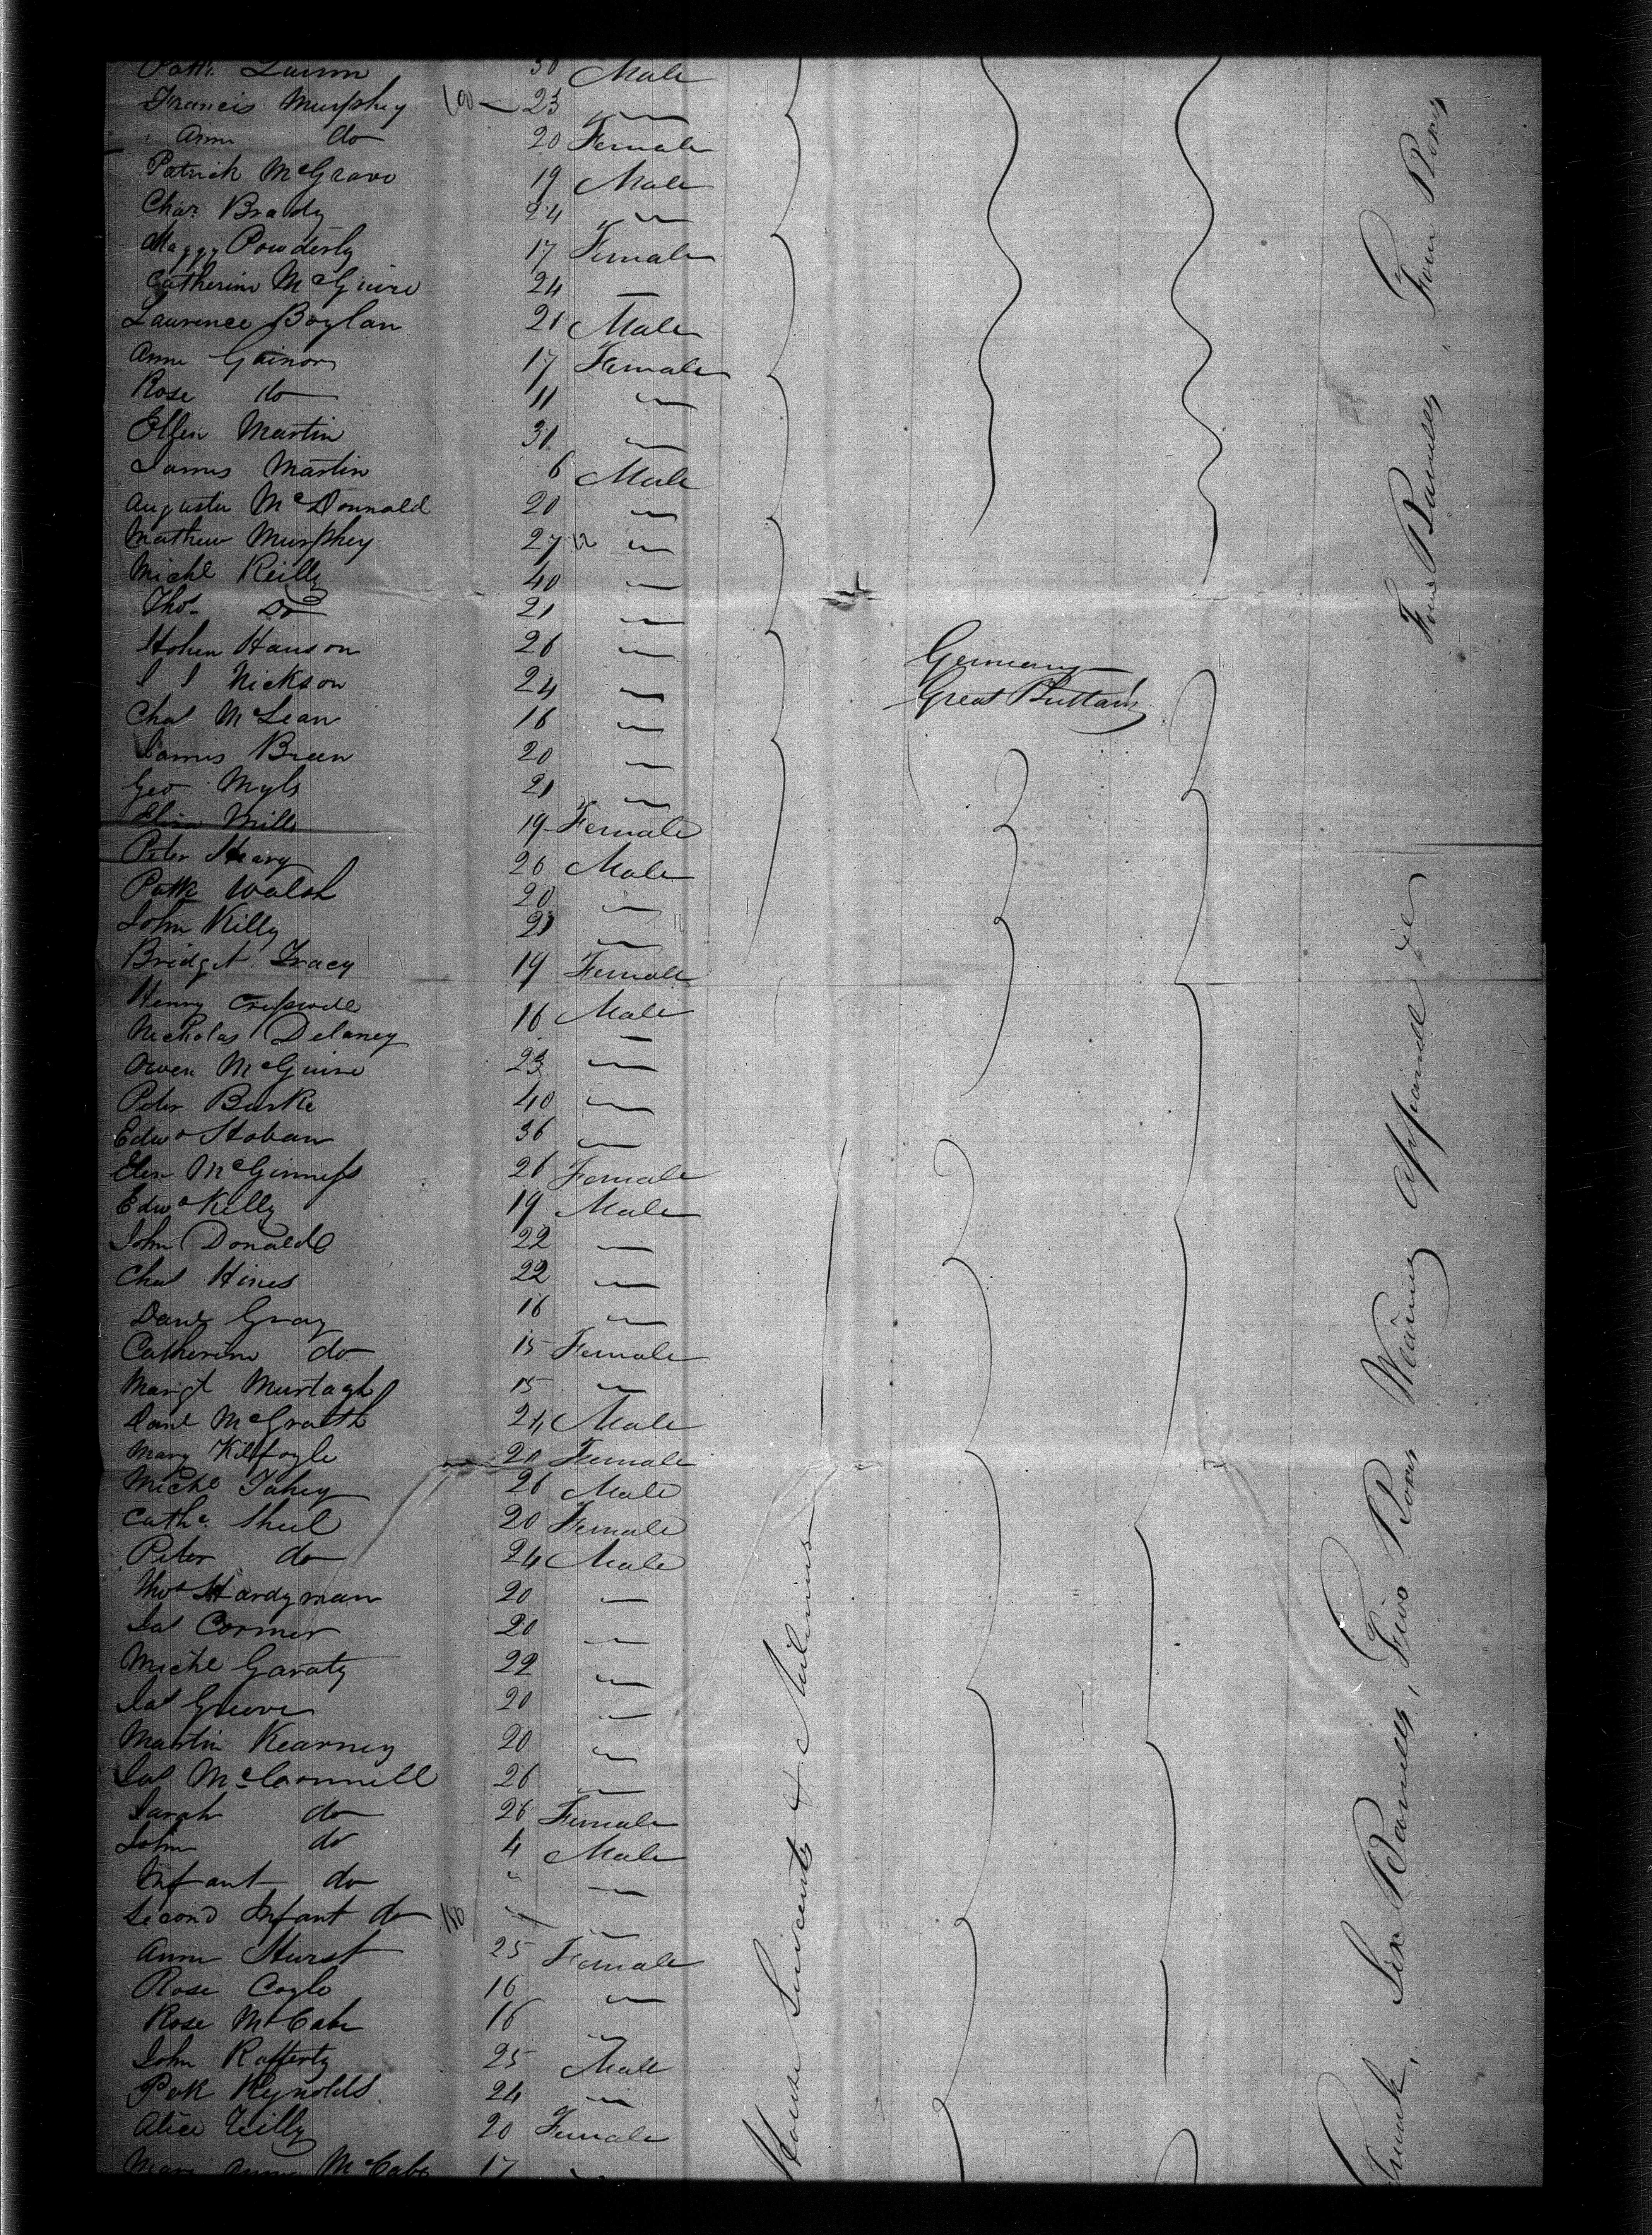 Patk. Quinn 30 Male
Francis Murphey 100 — 23 "
Ann do 20 Female
Patrick McGrave 19 Male
Chas. Brady 24 "
Maggy Powderly 17 Female
Catherine McGuire 24 "
Laurence Boylan 21 Male
Ann Gainor 17 Female
Rose do 11 "
Ellen Martin 31 "
James Martin 6 Male
Augustu McDonnald 20 "
Mathew Murphey 27 "
Michl Reilly 40 "
Thos. Do 21 "
Hohen Hanson 26 " Germany
I I Nickson 24 " Great Brittain
Chas McLean 16 "
James Breen 20 "
Geo Myls 21 "
Eliza Mills 19 Female
Peter Heavy 26 Male
Patk Walsh 20 "
John Killy 21 "
Bridget Tracy 19 Female
Henry 16 Male
Nicholas Delaney "
Owen McGuire 23 "
Peter Burke 40 "
Edwd Hoban 36 "
Elen McGinness 26 Female
Edwd Killy 19 Male
John Donald 22 "
Chas Hines 22 "
Danl Gray 16 "
Catherine do 15 Female
Margt Murtagh 15 "
Danl McGrath 24 Male
Mary Kilfoyle 20 Female
Michl Fahey 26 Male
Cathe. Sheel 20 Female
Peter do 24 Male
Thos Hardyman 20 "
Jas Cormer 20 "
Michl Garaty 22 "
Jas Greove 20 "
Martin Kearney 20 "
Jas McConnill 26 "
Sarah do 26 Female
John do 4 Male
Infant do " "
Second Infant do " "
Ann Hurst 25 Female
Rose Coyle 16 "
Rose McCabe 16 "
John Rafferty 25 Male
Patk Reynolds 24 "
Alice Reilly 20 Female
Mary Anne McCabe 17 "
House Servants & Milliners
Trunk, Six Barrells, Two Boxes Wearing Apparell &c
Four Barrells, Four Boxes